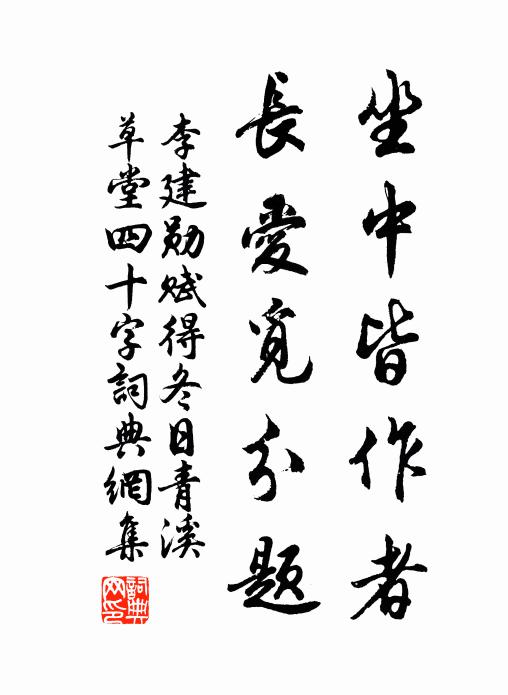 坐中皆作者
長愛覓分題
李建勛賦得冬日青溪
草堂四十字詞典網集
詞典网印